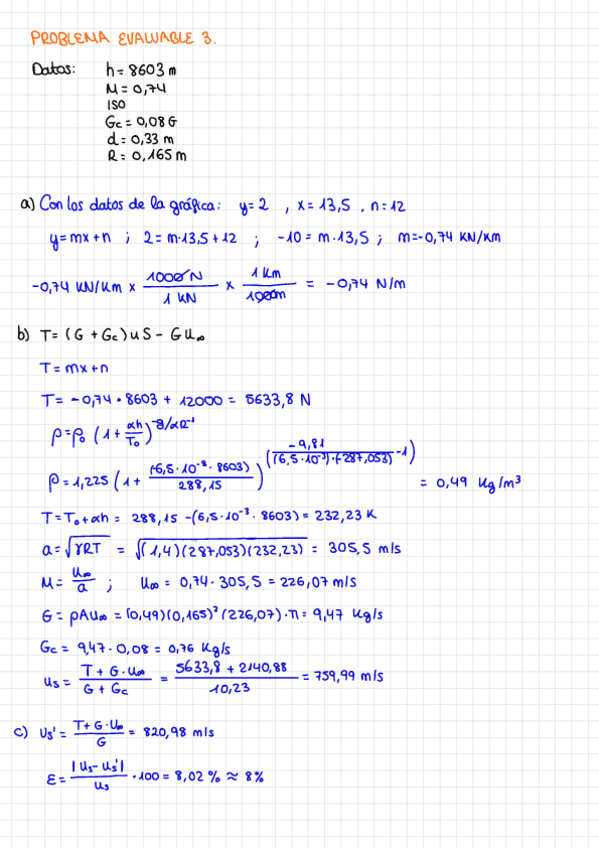 PROBLEMA EVALUABLE 3.
Datos: h = 8603 m
M = 0,74
ISO
Gc = 0,08 G
d = 0,33 m
R = 0,165 m
a) Con los datos de la gráfica: y = 2 , x = 13,5 , n = 12
y = mx + n ; 2 = m·13,5 + 12 ; -10 = m·13,5 ; m = -0,74 KN/Km
-0,74 KN/Km × 1000 N / 1 KN × 1 Km / 1000m = -0,74 N/m
b) T = (G + Gc) us - G u∞
T = mx + n
T = -0,74 · 8603 + 12000 = 5633,8 N
ρ = ρ₀ (1 + αh/T₀)^(-g/αR -1)
ρ = 1,225 (1 + (-6,5·10⁻³·8603)/288,15)^(-9,81/((6,5·10⁻³)·(-287,053)) -1) = 0,49 Kg/m³
T = T₀ + αh = 288,15 - (6,5·10⁻³ · 8603) = 232,23 K
a = √γRT = √(1,4)(287,053)(232,23) = 305,5 m/s
M = u∞/a ; u∞ = 0,74 · 305,5 = 226,07 m/s
G = ρAu∞ = (0,49)(0,165)²(226,07)·π = 9,47 Kg/s
Gc = 9,47 · 0,08 = 0,76 Kg/s
us = (T + G·u∞)/(G + Gc) = (5633,8 + 2140,88)/10,23 = 759,99 m/s
c) us' = (T + G·u∞)/G = 820,98 m/s
ε = |us - us'|/us · 100 = 8,02 % ≈ 8%